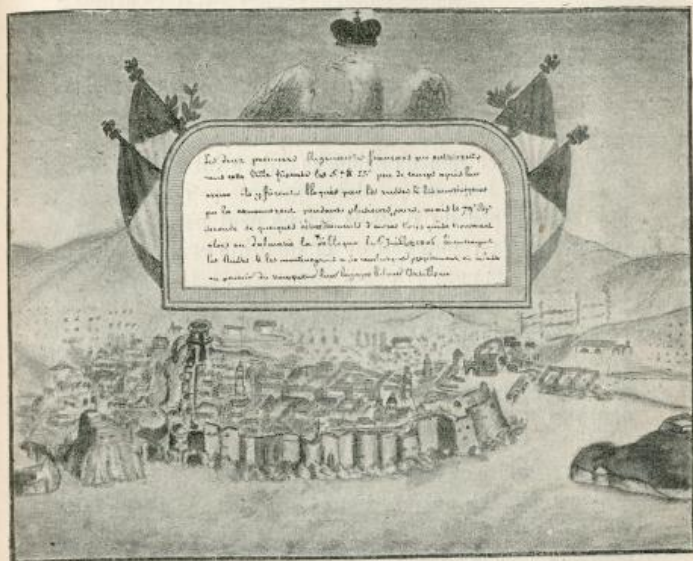 Les deux premiers Régiments français qui entrèrent
dans cette Ville furent les 5e & 23e peu de temps après leur
ils y furent bloqués par les russes & les monténégrins
qui la pendant plusieurs jours, mais le 79e Rgt
seconde de quelques détachements d'autres Corps qui se trouvaient
alors en Dalmatie la débloqua le 6 Juillet 1806
les Russes & les monténégrins à se
au pouvoir du vainqueur leur bagages & leur Artillerie